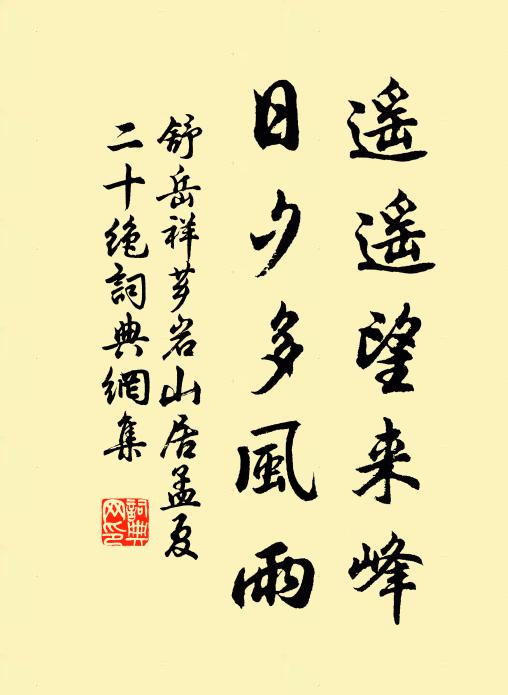 遥遥望来峰
日夕多風雨
舒岳祥芗岩山居孟夏
二十绝詞典網集
詞典网印